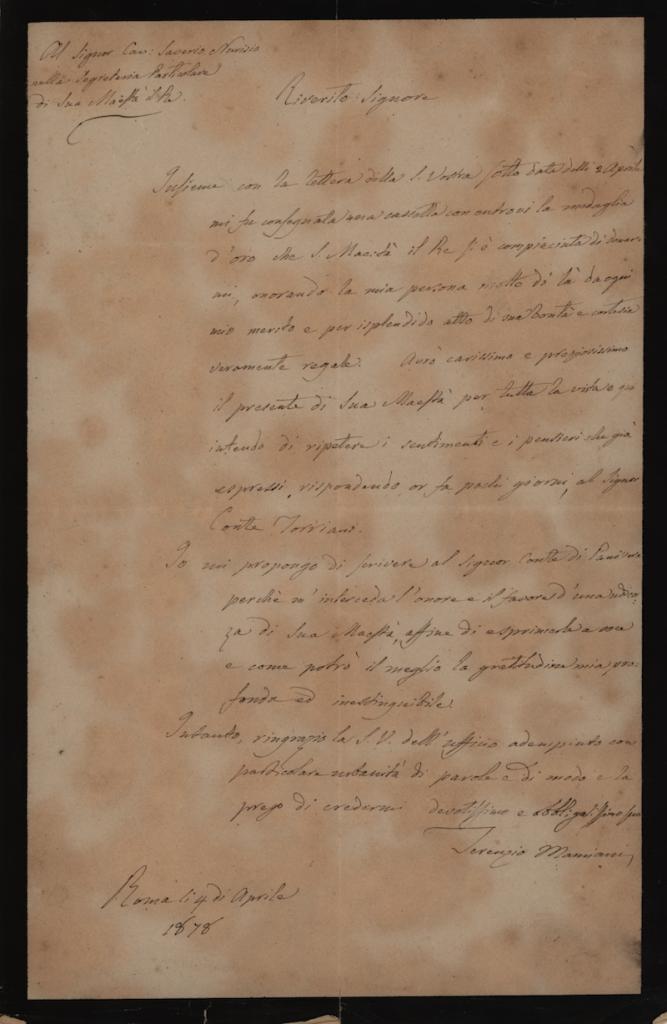 Al Signor Cav: Saverio
nella Segreteria Particolare
di Sua Maestà il Re.
Riverito Signore
Insieme con la lettera della S. Vostra sotto data delli 2 Aprile
mi fu consegnata una cassetta con entrovi la medaglia
d'oro che S. Maestà il Re si è compiaciuta di donar-
mi, onorando la mia persona molto di là da ogni
mio merito e per isplendido atto di sua bontà e cortesia
veramente regale. Avrò carissimo e preziosissimo
il presente di Sua Maestà per tutta la vita e qui
intendo di ripetere i sentimenti e i pensieri che già
espressi, rispondendo or fa pochi giorni, al Signor
Conte Torriani.
Io mi propongo di scrivere al Signor Conte di
perchè m'interceda l'onore e il favore d'una udien-
za di Sua Maestà, affine di esprimerle a voce
e come potrò il meglio la gratitudine mia pro-
fonda ed inestinguibile.
Intanto, ringrazio la S. V. dell'ufficio adempiuto con
particolare urbanità di parole e di modo e la
prego di credermi devotissimo e obbligatissimo suo
Terenzio Mamiani
Roma li 4 di Aprile
1878